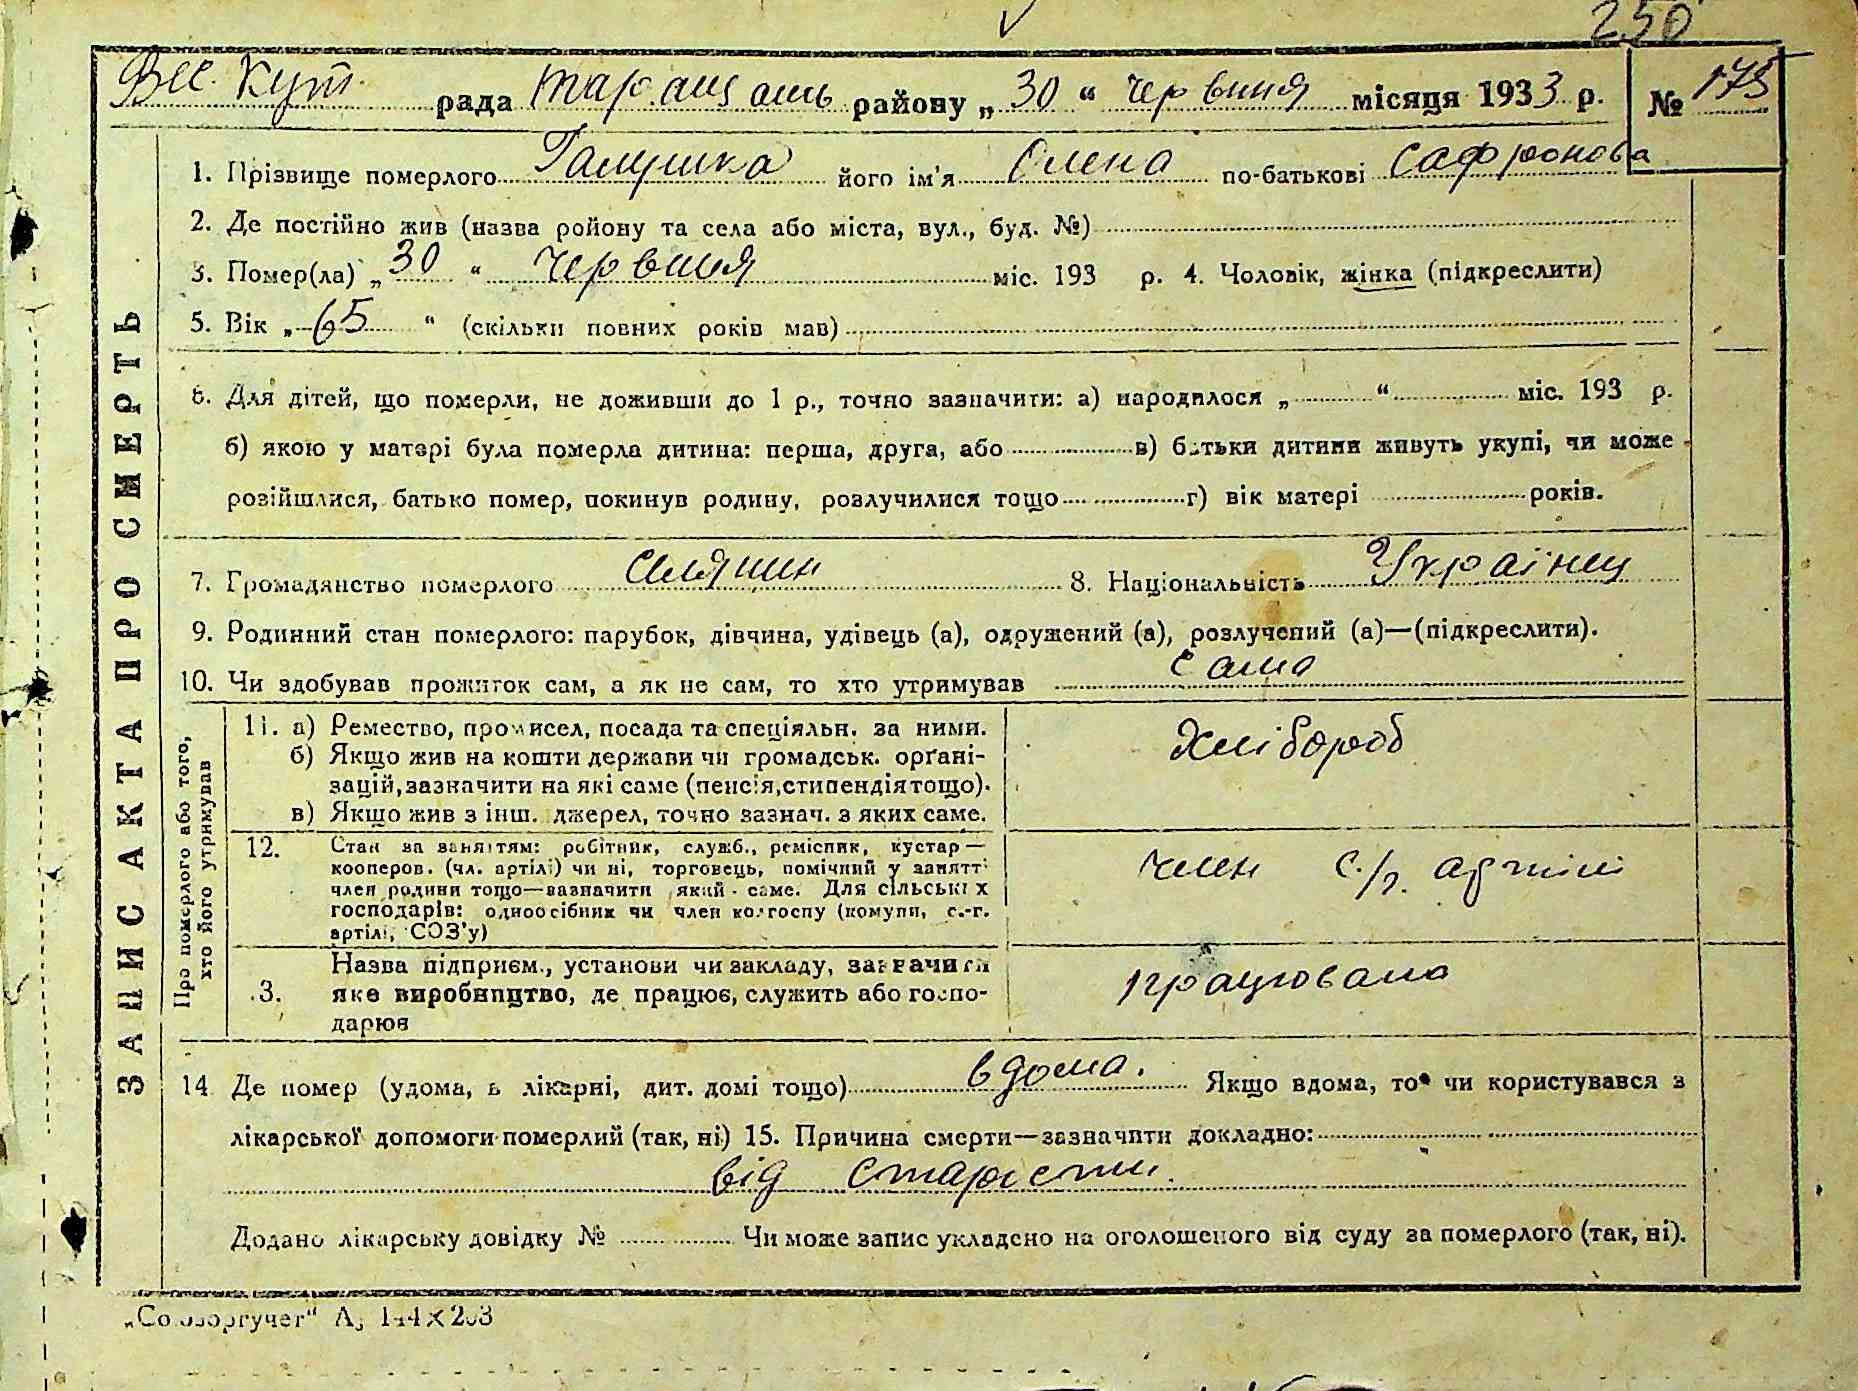 250
Вес. Кут рада таращань району „ 30 “ червния місяця 1933 р. № 175
1. Прізвище померлого Галушка його ім'я Олена по-батькові Сафронова
2. Де постійно жив (назва ройону та села або міста, вул., буд. №)
3. Помер(ла) „ 30 “ червния міс. 193 р. 4. Чоловік, жінка (підкреслити)
5. Вік „ 65 “ (скільки повних років мав)
6. Для дітей, що померли, не доживши до 1 р., точно зазначити: а) народилося „ “ міс. 193 р.
б) якою у матері була померла дитина: перша, друга, або в) батьки дитини живуть укупі, чи може
розійшлися, батько помер, покинув родину, розлучилися тощо г) вік матері років.
7. Громадянство померлого селянин 8. Національність Українец
9. Родинний стан померлого: парубок, дівчина, удівець (а), одружений (а), розлучений (а)—(підкреслити).
10. Чи здобував прожиток сам, а як не сам, то хто утримував сама
ЗАПИС АКТА ПРО СМЕРТЬ
Про померлого або того,
хто його утримував
11. а) Ремество, промисел, посада та спеціяльн. за ними. Хлібороб
б) Якщо жив на кошти держави чи громадськ. орґані-
зацій, зазначити на які саме (пенсія, стипендія тощо).
в) Якщо жив з інш. джерел, точно зазнач. з яких саме.
12. Стан за заняттям: робітник, служб., ремісник, кустар—
кооперов. (чл. артілі) чи ні, торговець, помічний у занятті
член родини тощо—зазначити який саме. Для сільських
господарів: одноосібник чи член колгоспу (комуни, с.-г.
артілі, СОЗ'у)
член с./г. артілі
13. Назва підприєм., установи чи закладу, зазначити
яке виробництво, де працює, служить або госпо-
дарює
працювала
14 Де помер (удома, в лікарні, дит. домі тощо) вдома. Якщо вдома, то чи користувався з
лікарської допомоги померлий (так, ні) 15. Причина смерти—зазначити докладно:
від старости.
Додано лікарську довідку № Чи може запис укладено на оголошеного від суду за померлого (так, ні).
„Союзоргучет“ А5 144×203